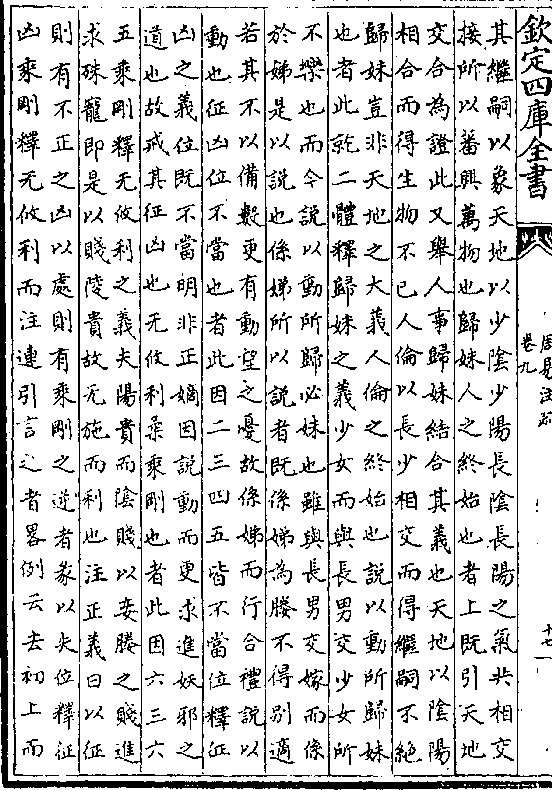 欽定四庫全書
周易注疏
卷九
十七
其繼嗣以象天地以少陰少陽長陰長陽之氣共相交
接所以蕃興萬物也歸妹人之終始也者上既引天地
交合為證此又舉人事歸妹結合其義也天地以陰陽
相合而得生物不已人倫以長少相交而得繼嗣不絶
歸妹豈非天地之大義人倫之終始也說以動所歸妹
也者此就二體釋歸妹之義少女而與長男交少女所
不樂也而今說以動所歸必妹也雖與長男交嫁而係
於娣是以說也係娣所以說者既係娣為媵不得別適
若其不以備數更有動望之憂故係娣而行合禮說以
動也征凶位不當也者此因二三四五皆不當位釋征
凶之義位既不當明非正嫡因說動而更求進妖邪之
道也故戒其征凶也无攸利柔乘剛也者此因六三六
五乘剛釋无攸利之義夫陽貴而陰賤以妾媵之賤進
求殊寵即是以賤陵貴故无施而利也注正義曰以征
則有不正之凶以處則有乘剛之逆者彖以失位釋征
凶乘剛釋无攸利而注連引言之者畧例云去初上而